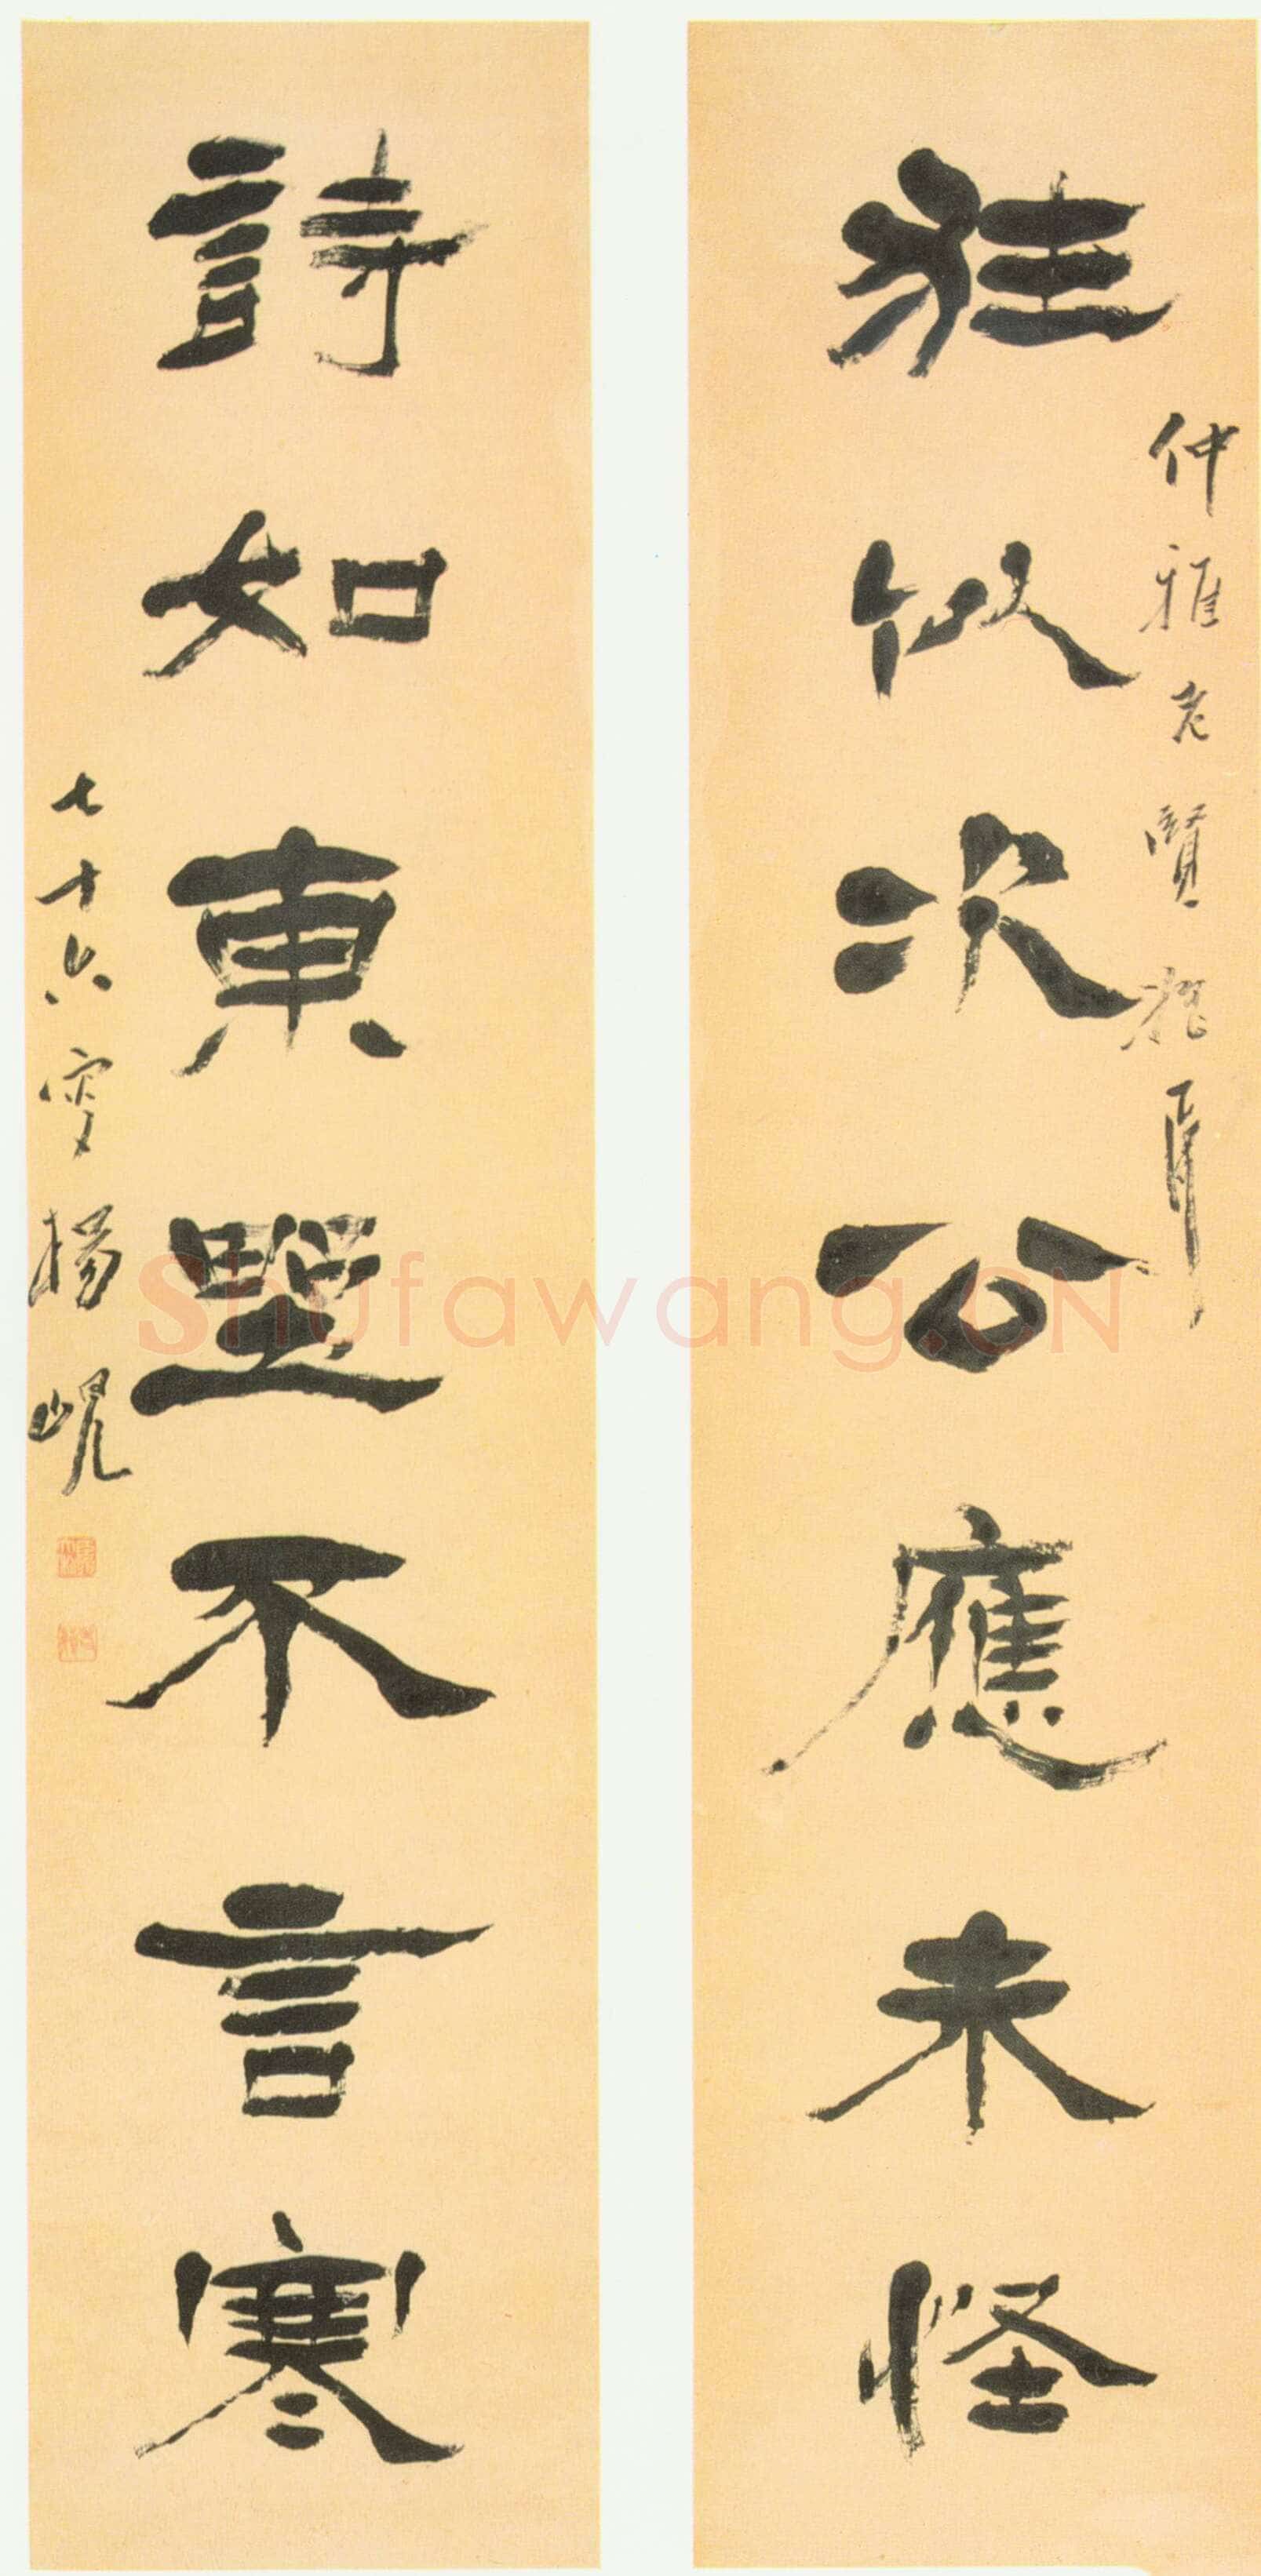 狂似次公應未怪
仲雅老賢
詩如東埜不言寒
七十六叟楊峴
Shufawang.CN